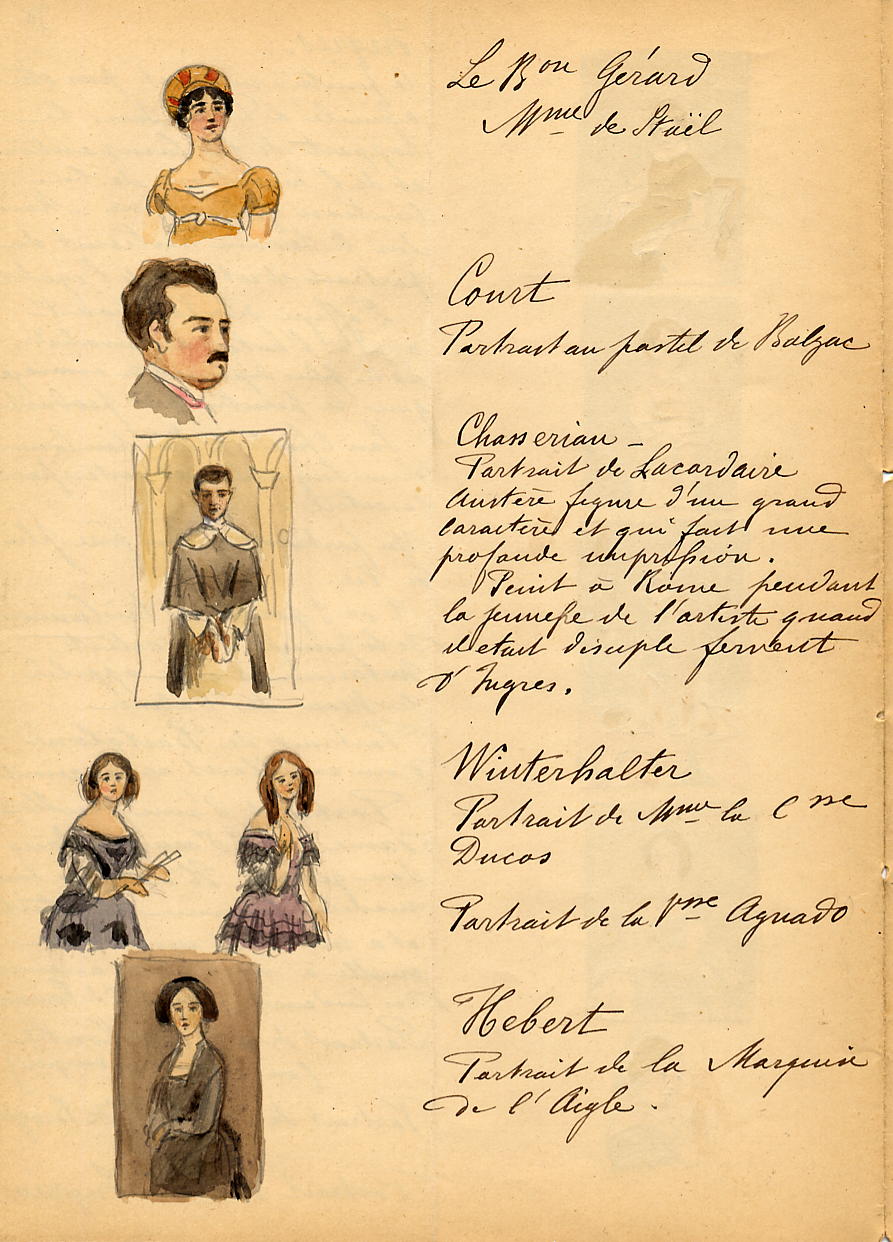 Le Bon Gérard
Mme de Staël
Court
Portrait au pastel de Balzac
Chasseriau –
Portrait de Lacordaire
Austère figure d'un grand
caractère et qui fait une
profonde impression.
Peint à Rome pendant
la jeunesse de l'artiste quand
il etait disciple fervent
d'Ingres.
Winterhalter
Portrait de Mme la Csse
Ducos
Portrait de la Vsse Aguado
Hebert
Portrait de la Marquise
de l'Aigle.